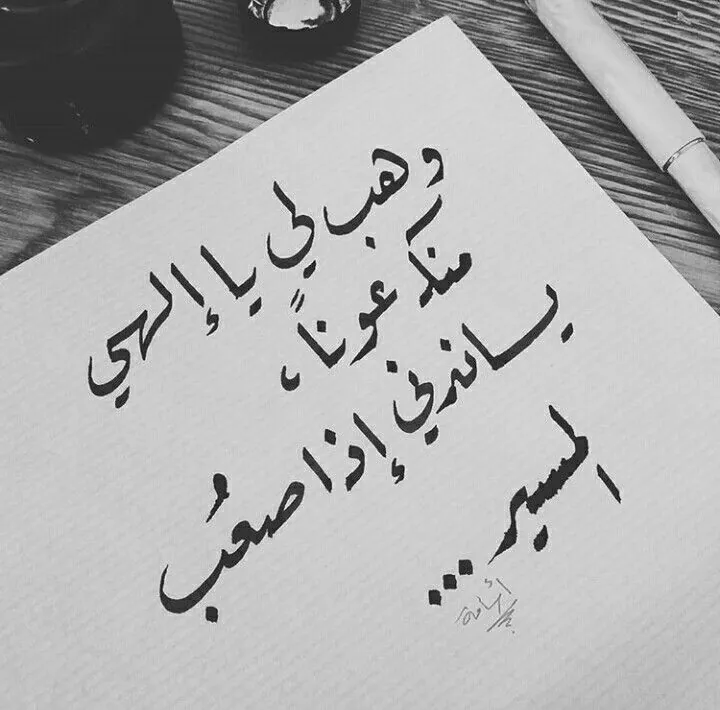 وهب لي يا إلهي
منك عوناً،
يساندني إذا صعُب
المسير...